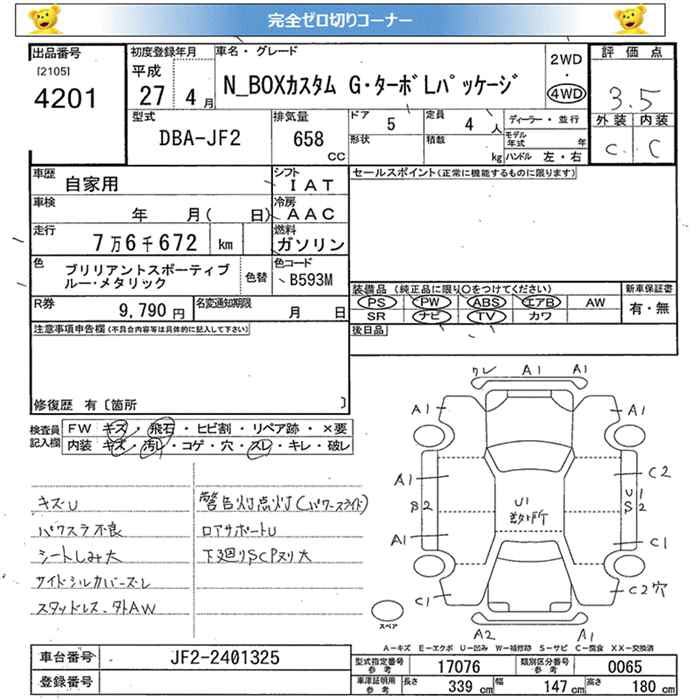 完全ゼロ切りコーナー
出品番号
[2105]
4201
初度登録年月
平成
27年 4月
車名・グレード
N_BOXカスタム G・ターボLパッケージ
2WD
・
4WD
評価点
3.5
外装 内装
C C
型式
DBA-JF2
排気量
658
CC
ドア 5
形状
定員 4 人
積載 kg
ディーラー・並行
モデル年式 年
ハンドル 左・右
車歴
自家用
シフト
IAT
車検
年 月( 日)
冷房
AAC
走行
7万6千672 km
燃料
ガソリン
色
ブリリアントスポーティブ
ルー・メタリック
色替
色コード
B593M
R券
9,790 円
名変通知期限
月 日
セールスポイント(正常に機能するものに限ります)
装備品 (純正品に限り○をつけてください)
PS PW ABS エアB AW
SR ナビ TV カワ
新車保証書
有・無
後日品
注意事項申告欄(不具合内容等は具体的に記入して下さい)
修復歴 有〔箇所 〕
検査員
記入欄
FW キズ・飛石・ヒビ割・リペア跡・×要
内装 キズ・汚レ・コゲ・穴・スレ・キレ・破レ
キズU
パワスラ不良
シートしみ大
サイドシルカバーズレ
スタッドレス・外AW
警告灯点灯(パワースライド)
ロアサポートU
下廻りSCPヌリ大
ワレ A1 A1
A1 A1
A1 C2
B2
U1
U1
S2
A1 C1
C1 C2穴
A2 A1
スペア
A-キズ E-エクボ U-凹み W-補修跡 S-サビ C-腐食 XX-交換済
車台番号
JF2-2401325
登録番号
型式指定番号
参考
17076
類別区分番号
参考
0065
車庫証明用
参考
長さ 339 cm
幅 147 cm
高さ 180 cm